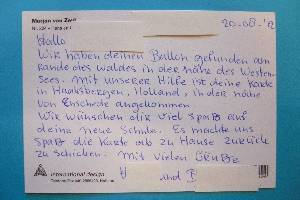 Marjan van Zwa
20-08-'12
Hallo
Wir haben deinen Ballon gefunden am
Rande des Waldes in der nähe des Westen-
Sees. Mit unserer Hilfe ist deine Karte
in Haaksbergen, Holland, in der nähe
von Enschede angekommen
Wir wünschen dir viel Spaß auf
deine neue Schule. Es machte uns
Spaß die Karte ab zu Hause zurück
zu schicken. Mit vielen Grüße
und B
international design